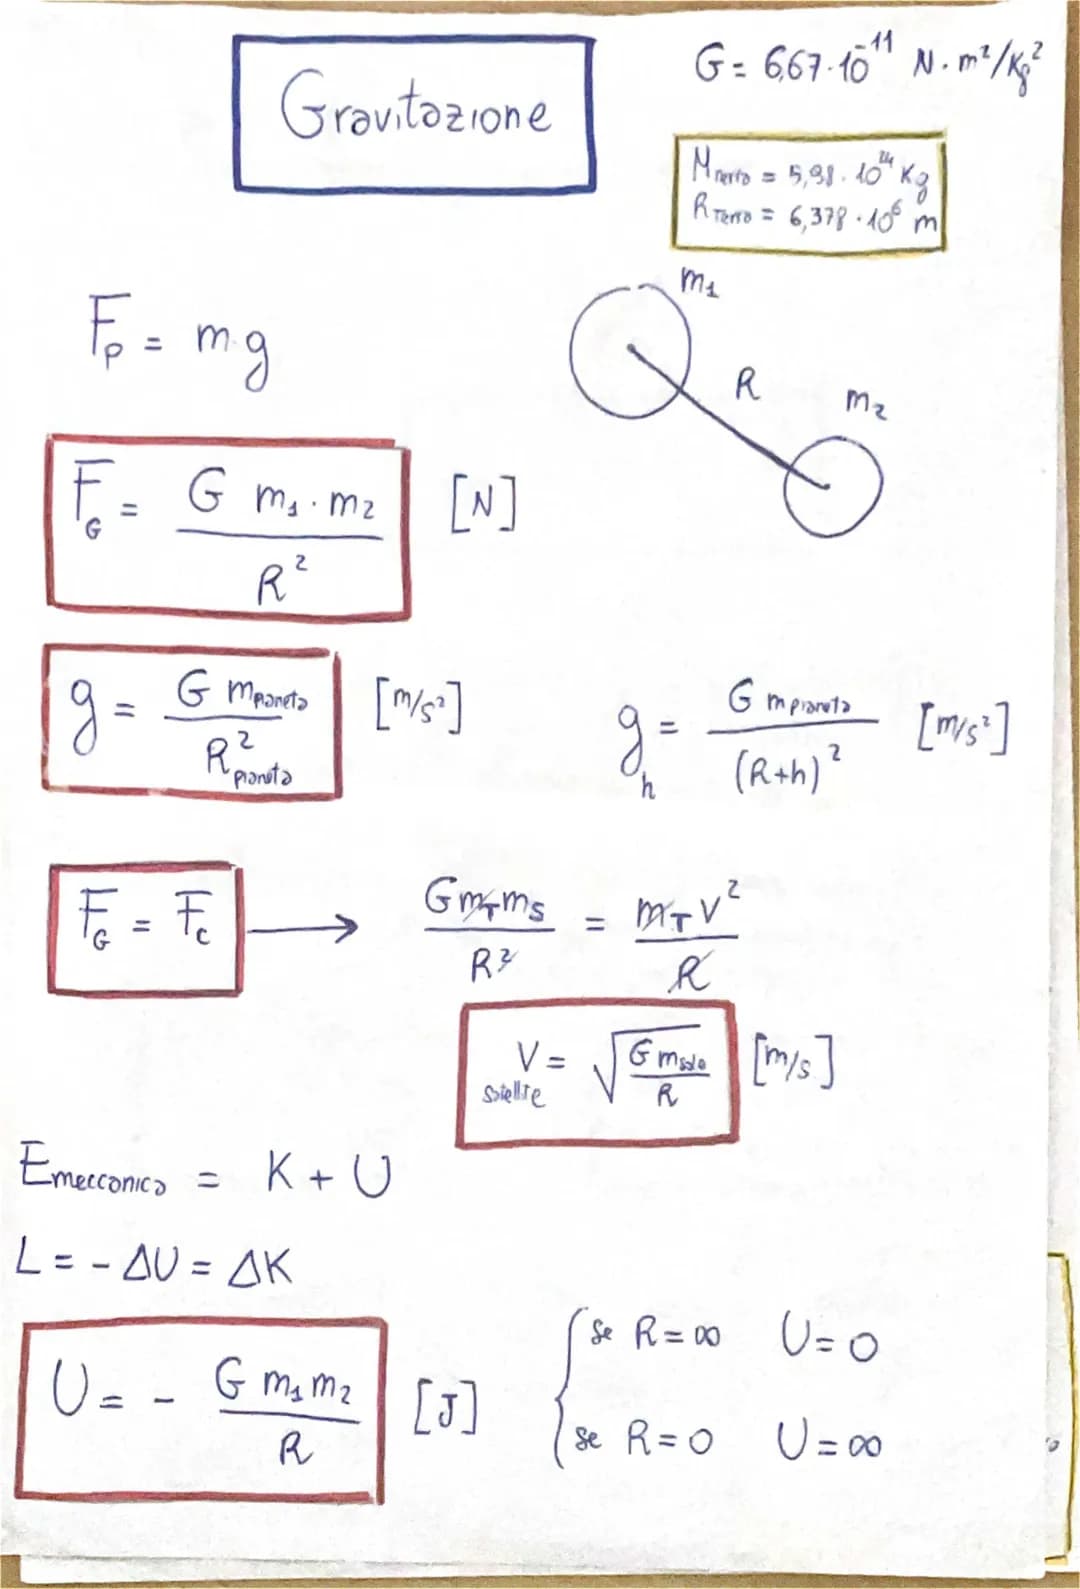 Gravitazione
G = 6,67·10⁻¹¹ N·m²/Kg²
M Terra = 5,98·10²⁴ Kg
R Terra = 6,378·10⁶ m
m₁
R
m₂
Fp = m·g
F_G = G m₁·m₂ / R² [N]
g = G m pianeta / R² pianeta [m/s²]
g_h = G m pianeta / (R+h)² [m/s²]
F_G = F_c → G m_T m_S / R² = m_T V² / R
V satellite = √(G m sole / R) [m/s]
E meccanica = K + U
L = - ΔU = ΔK
U = - G m₁ m₂ / R [J]
se R = ∞ U = 0
se R = 0 U = ∞